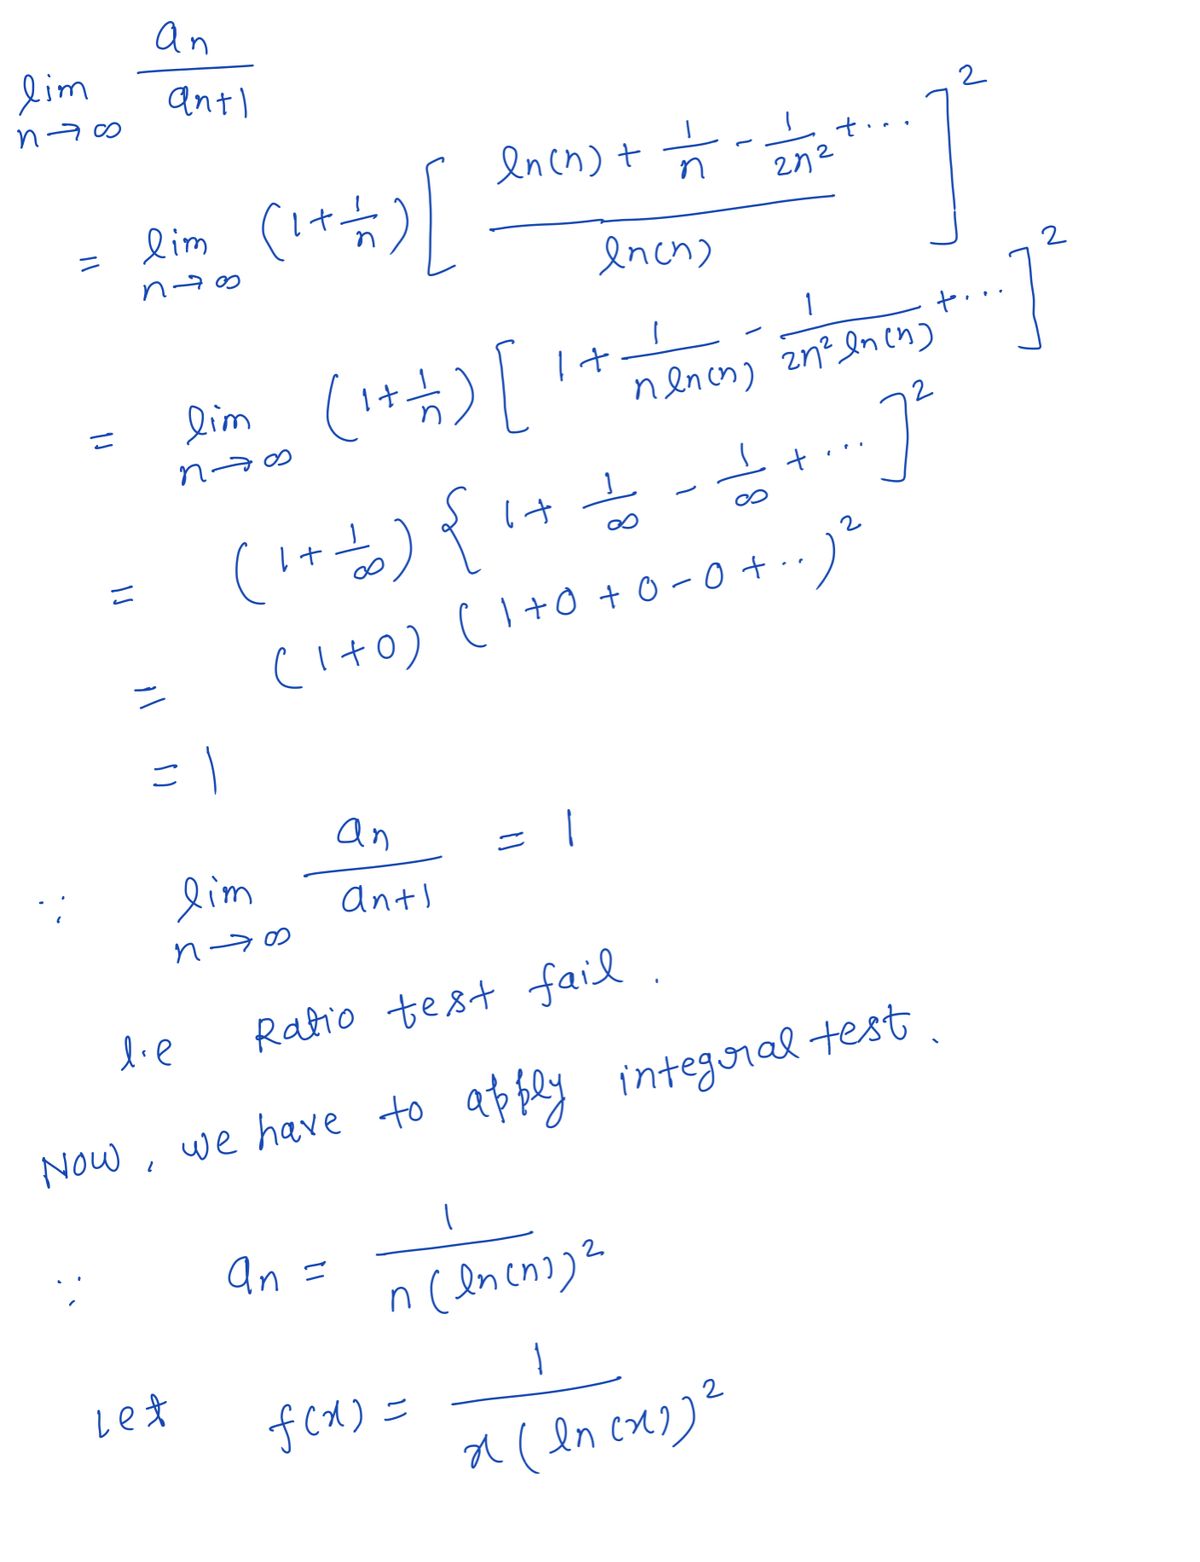 lim n→∞ an / an+1
= lim n→∞ (1 + 1/n) [ (ln(n) + 1/n - 1/2n² + ...) / ln(n) ]²
= lim n→∞ (1 + 1/n) [ 1 + 1/(n ln(n)) - 1/(2n² ln(n)) + ... ]²
= (1 + 1/∞) { 1 + 1/∞ - 1/∞ + ... ]²
= (1+0) (1+0+0-0+..)²
= 1
∵ lim n→∞ an / an+1 = 1
I.e Ratio test fail.
Now, we have to apply integral test.
∵ an = 1 / n(ln(n))²
Let f(x) = 1 / x(ln(x))²